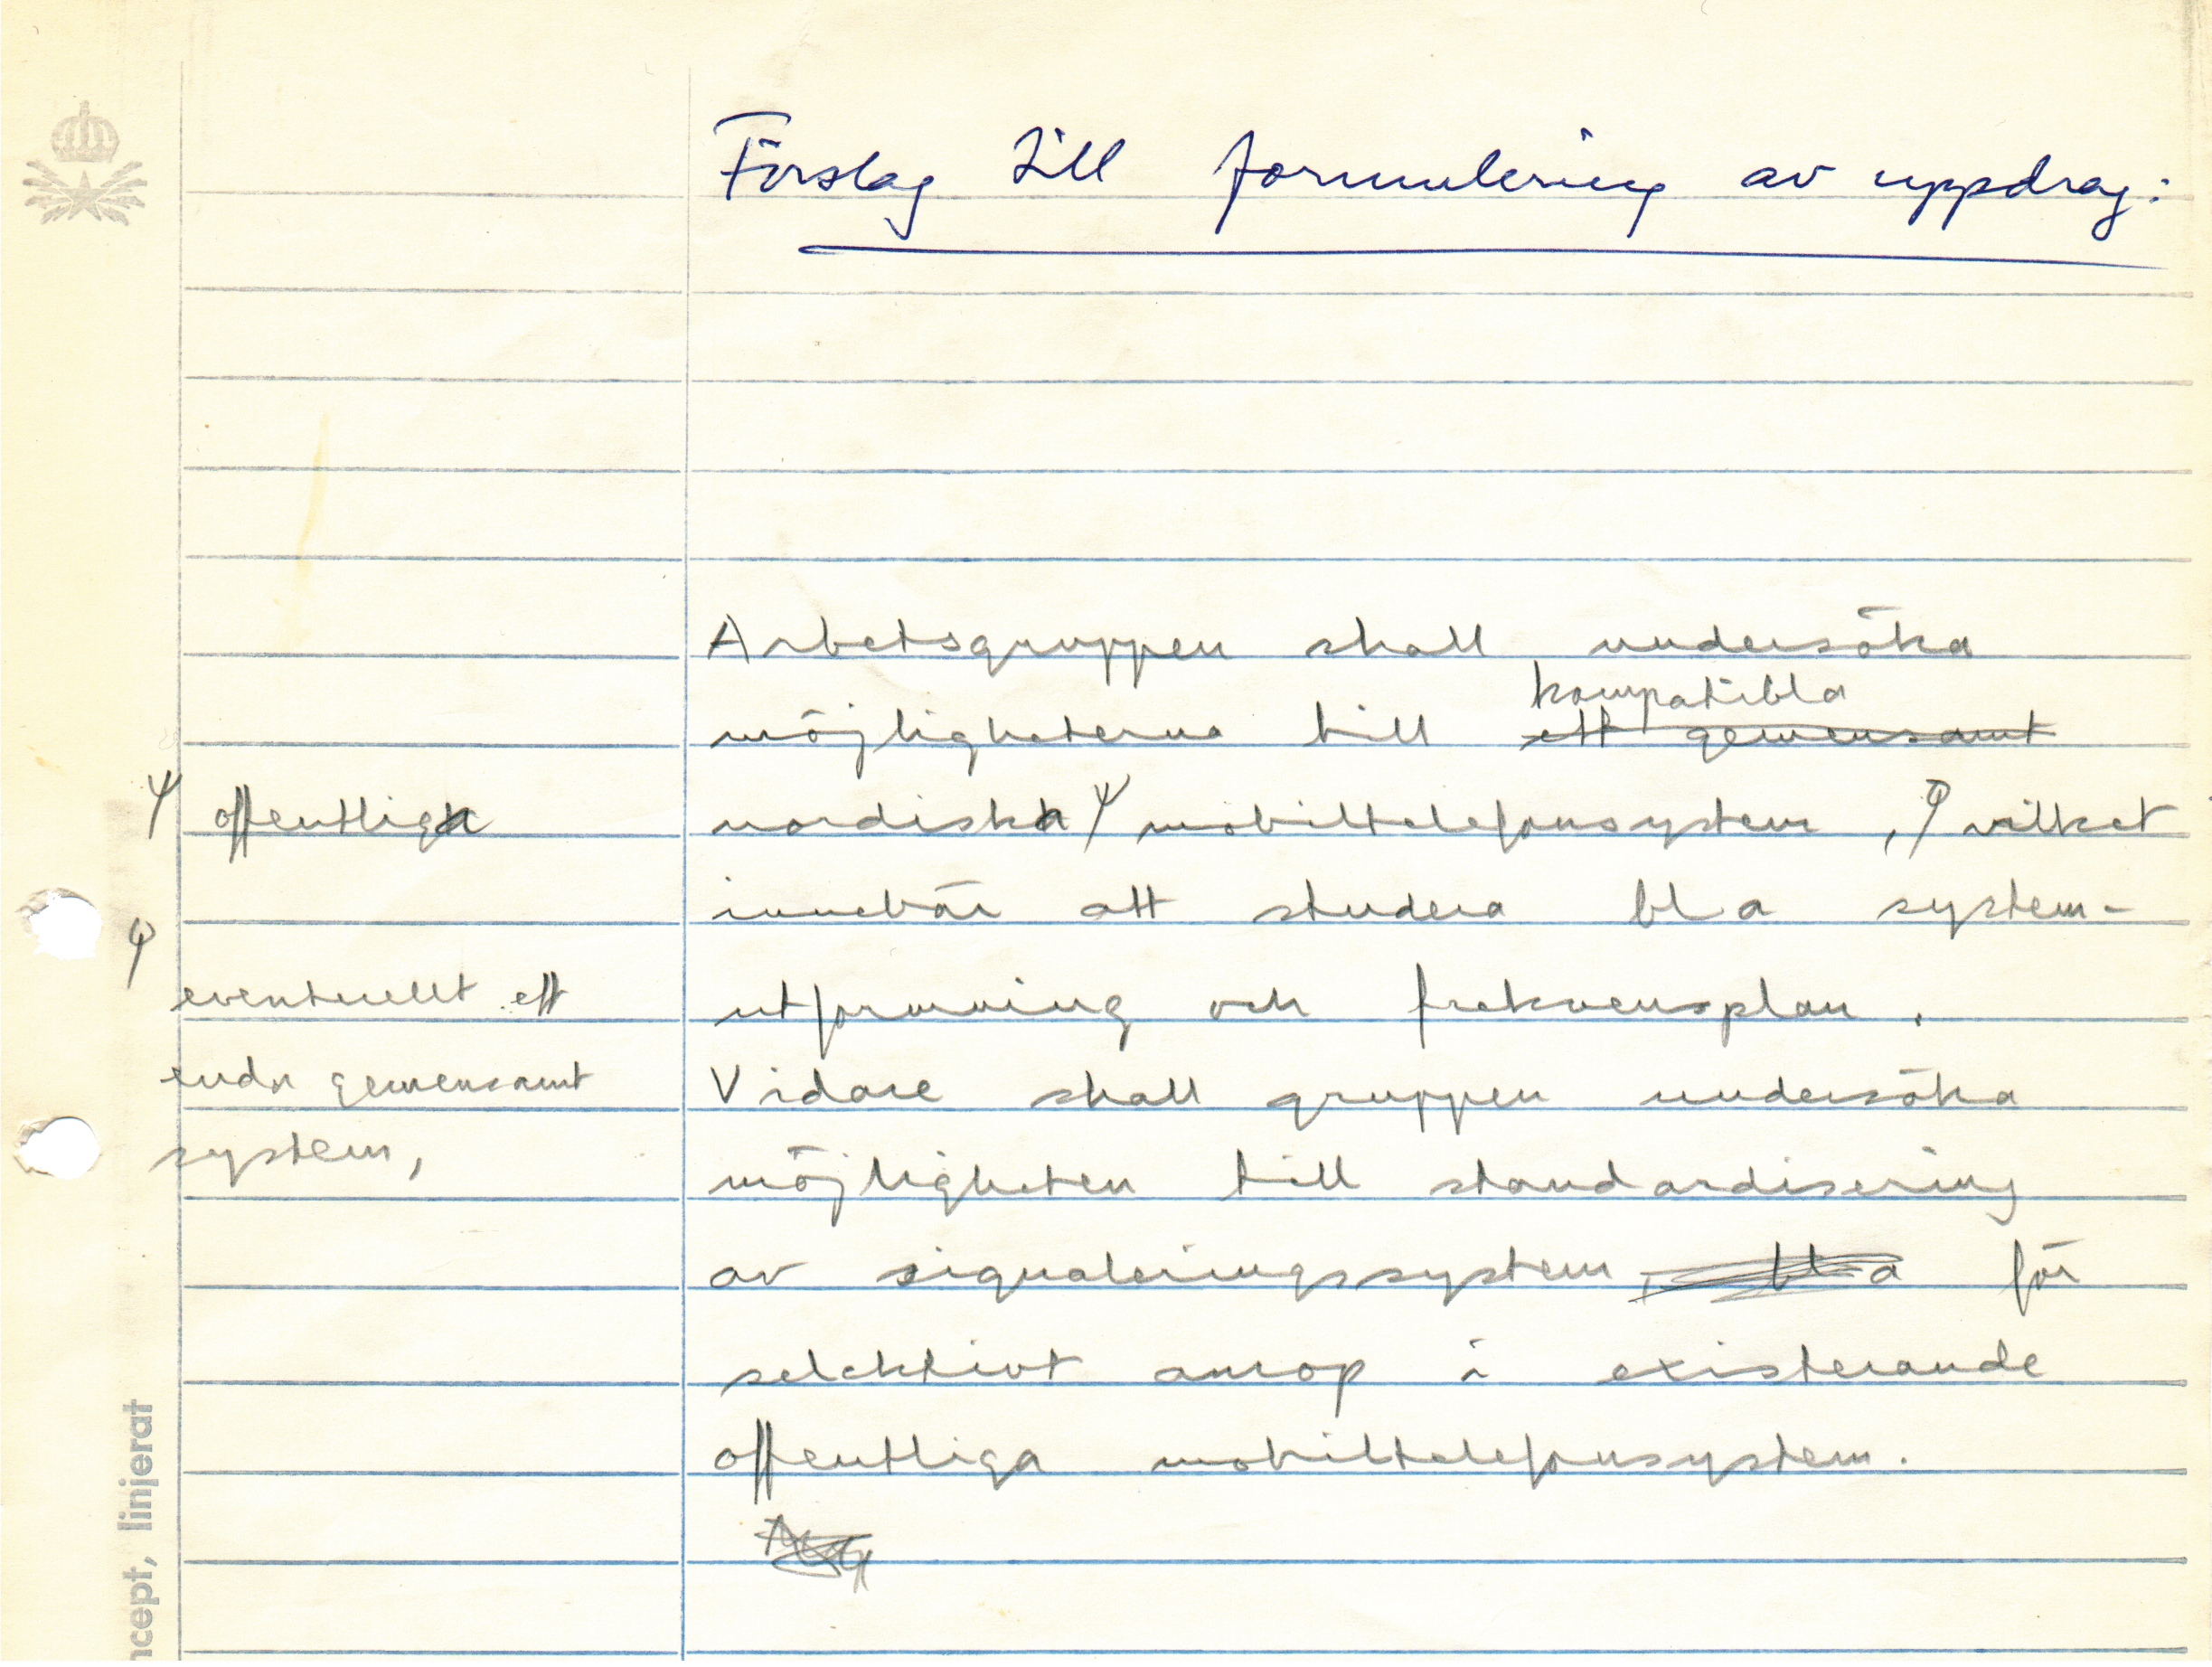 Förslag till formulering av uppdrag:
Arbetsgruppen skall undersöka
kompatibla
möjligheterna till ett gemensamt
offentliga
nordiska mobiltelefonsystem, vilket
innebär att studera bl a system-
eventuellt ett
utformning och frekvensplan.
enda gemensamt
Vidare skall gruppen undersöka
system,
möjligheten till standardisering
av signaleringssystem, bl a för
selektivt anrop i existerande
offentliga mobiltelefonsystem.
ncept, linjerat